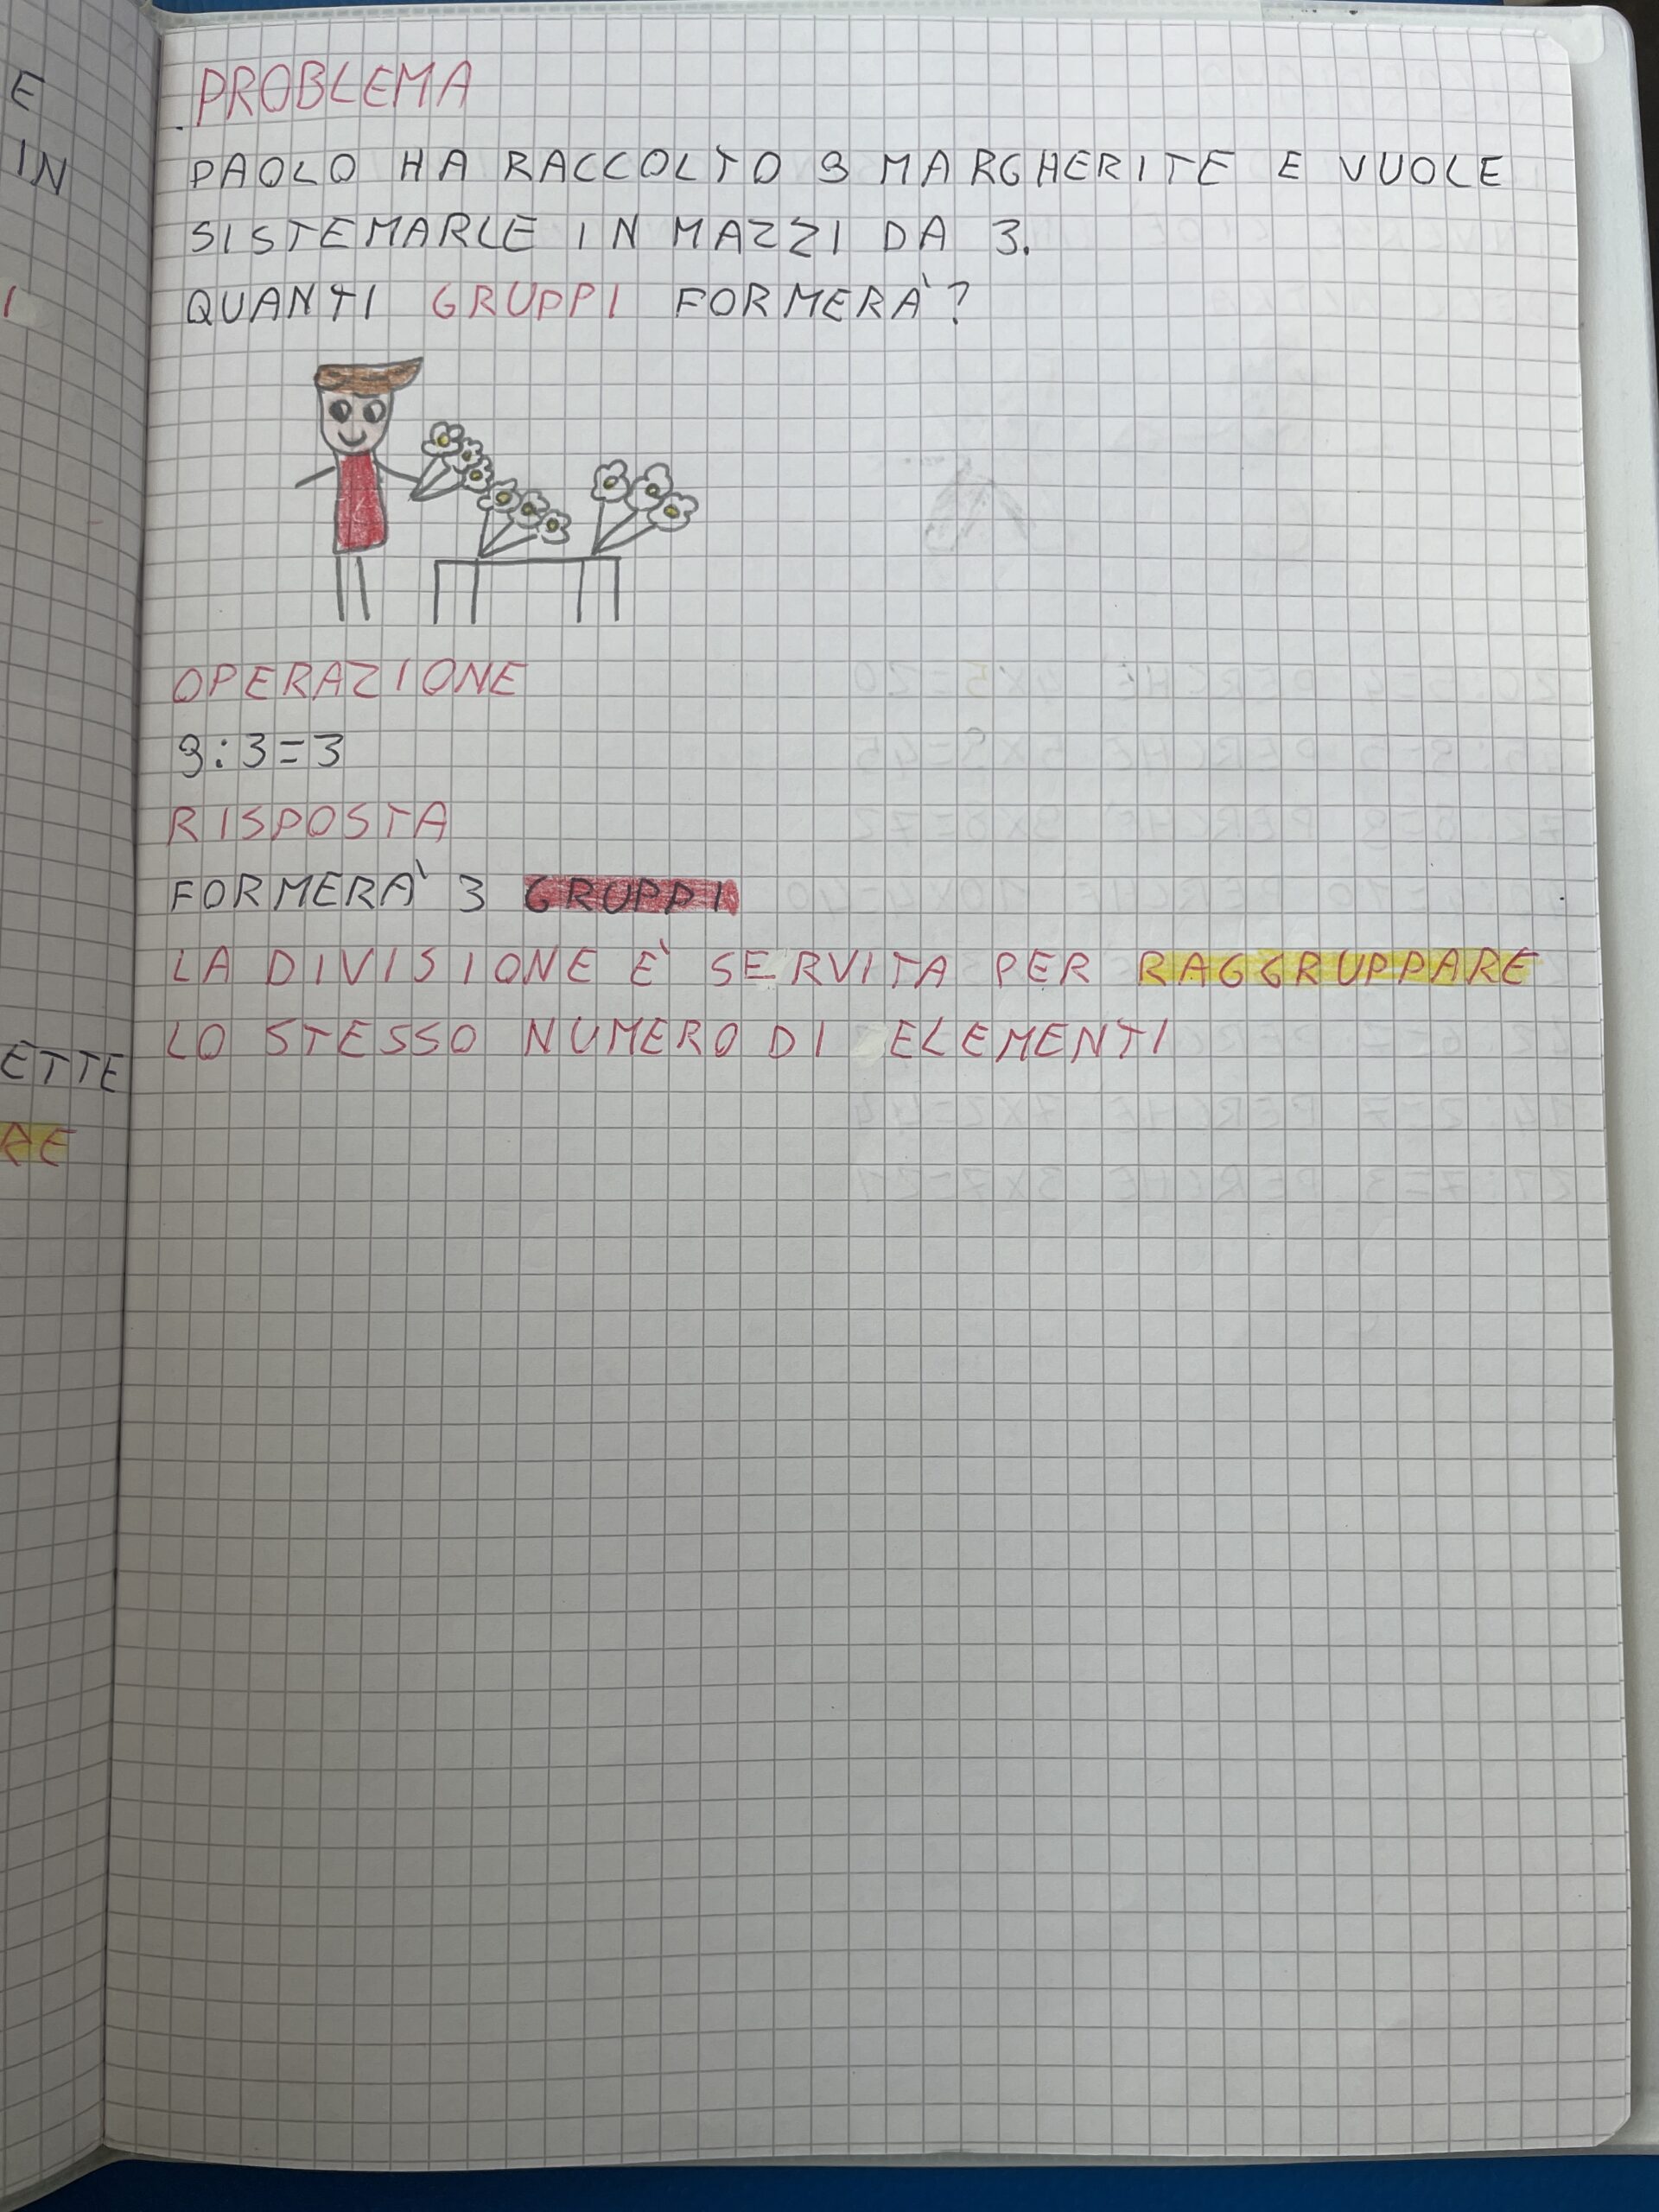 PROBLEMA
PAOLO HA RACCOLTO 9 MARGHERITE E VUOLE
SISTEMARLE IN MAZZI DA 3.
QUANTI GRUPPI FORMERÀ?
OPERAZIONE
9:3=3
RISPOSTA
FORMERÀ 3 GRUPPI
LA DIVISIONE È SERVITA PER RAGGRUPPARE
LO STESSO NUMERO DI ELEMENTI
E
IN
I
ETTE
RE